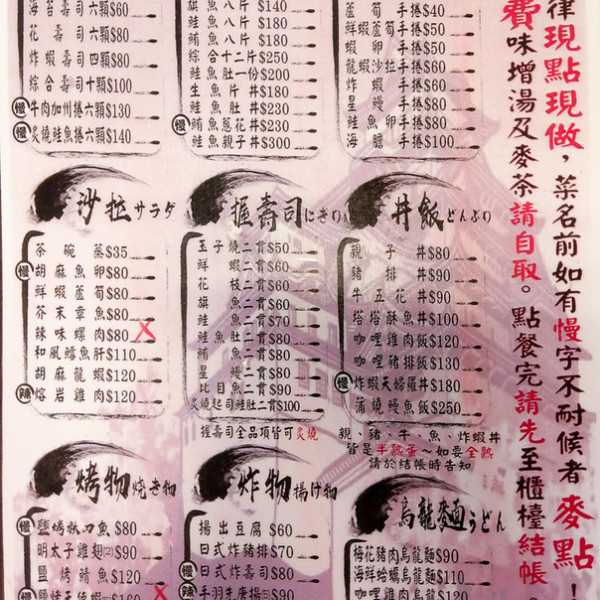 海苔壽司六顆$60
花壽司六顆$80
炸蝦壽司四顆$80
綜合壽司十顆$100
慢 牛肉加州捲六顆$130
慢 炙燒鮭魚捲六顆$140
旗魚八片$140
鮭魚八片$180
鮪魚八片$180
綜合十二片$250
鮭魚肚一份$200
生魚片丼$180
鮭魚丼$230
慢 鮪魚蔥花丼$230
鮭魚親子丼$300
蘆筍手捲$40
鮮蝦蘆筍手捲$50
蝦卵手捲$50
龍蝦沙拉手捲$60
炸蝦手捲$60
星鰻手捲$80
鮭魚卵手捲$80
海膽手捲$100
沙拉サラダ
茶碗蒸$35
慢 胡麻魚卵$80
鮮蝦蘆筍$80
芥末章魚$80
辣味螺肉$80 X
和風鱈魚肝$110
胡麻龍蝦$120
辣 熔岩雞肉$120
握壽司にぎり
玉子燒二貫$50
鮮蝦二貫$60
花枝二貫$60
旗魚二貫$60
鮭魚二貫$70
鮭魚肚二貫$80
鮪魚二貫$80
星鰻二貫$80
比目魚二貫$90
炙燒起司鮭肚二貫$100
握壽司全品項皆可炙燒
丼飯どんぶり
親子丼$80
豬排丼$90
牛五花丼$90
塔塔酥魚丼$100
咖哩雞肉飯$120
咖哩豬排飯$130
慢 炸蝦天婦羅丼$180
蒲燒鰻魚飯$250
親、豬、牛、魚、炸蝦丼
皆是半熟蛋～如要全熟
請於結帳時告知
烤物焼き物
慢 鹽烤秋刀魚$80
明太子雞翅㈡$90
鹽烤鯖魚$120
炸物揚げ物
揚出豆腐$60
日式炸豬排$70
慢 日式炸壽司$80
辣 手羽先唐揚㈢$90
烏龍麵うどん
梅花豬肉烏龍麵$90
海鮮蛤蠣烏龍麵$110
咖哩雞肉烏龍麵$120
律現點現做，菜名前如有慢字不耐候者麥點！
費味增湯及麥茶請自取。點餐完請先至櫃檯結帳。